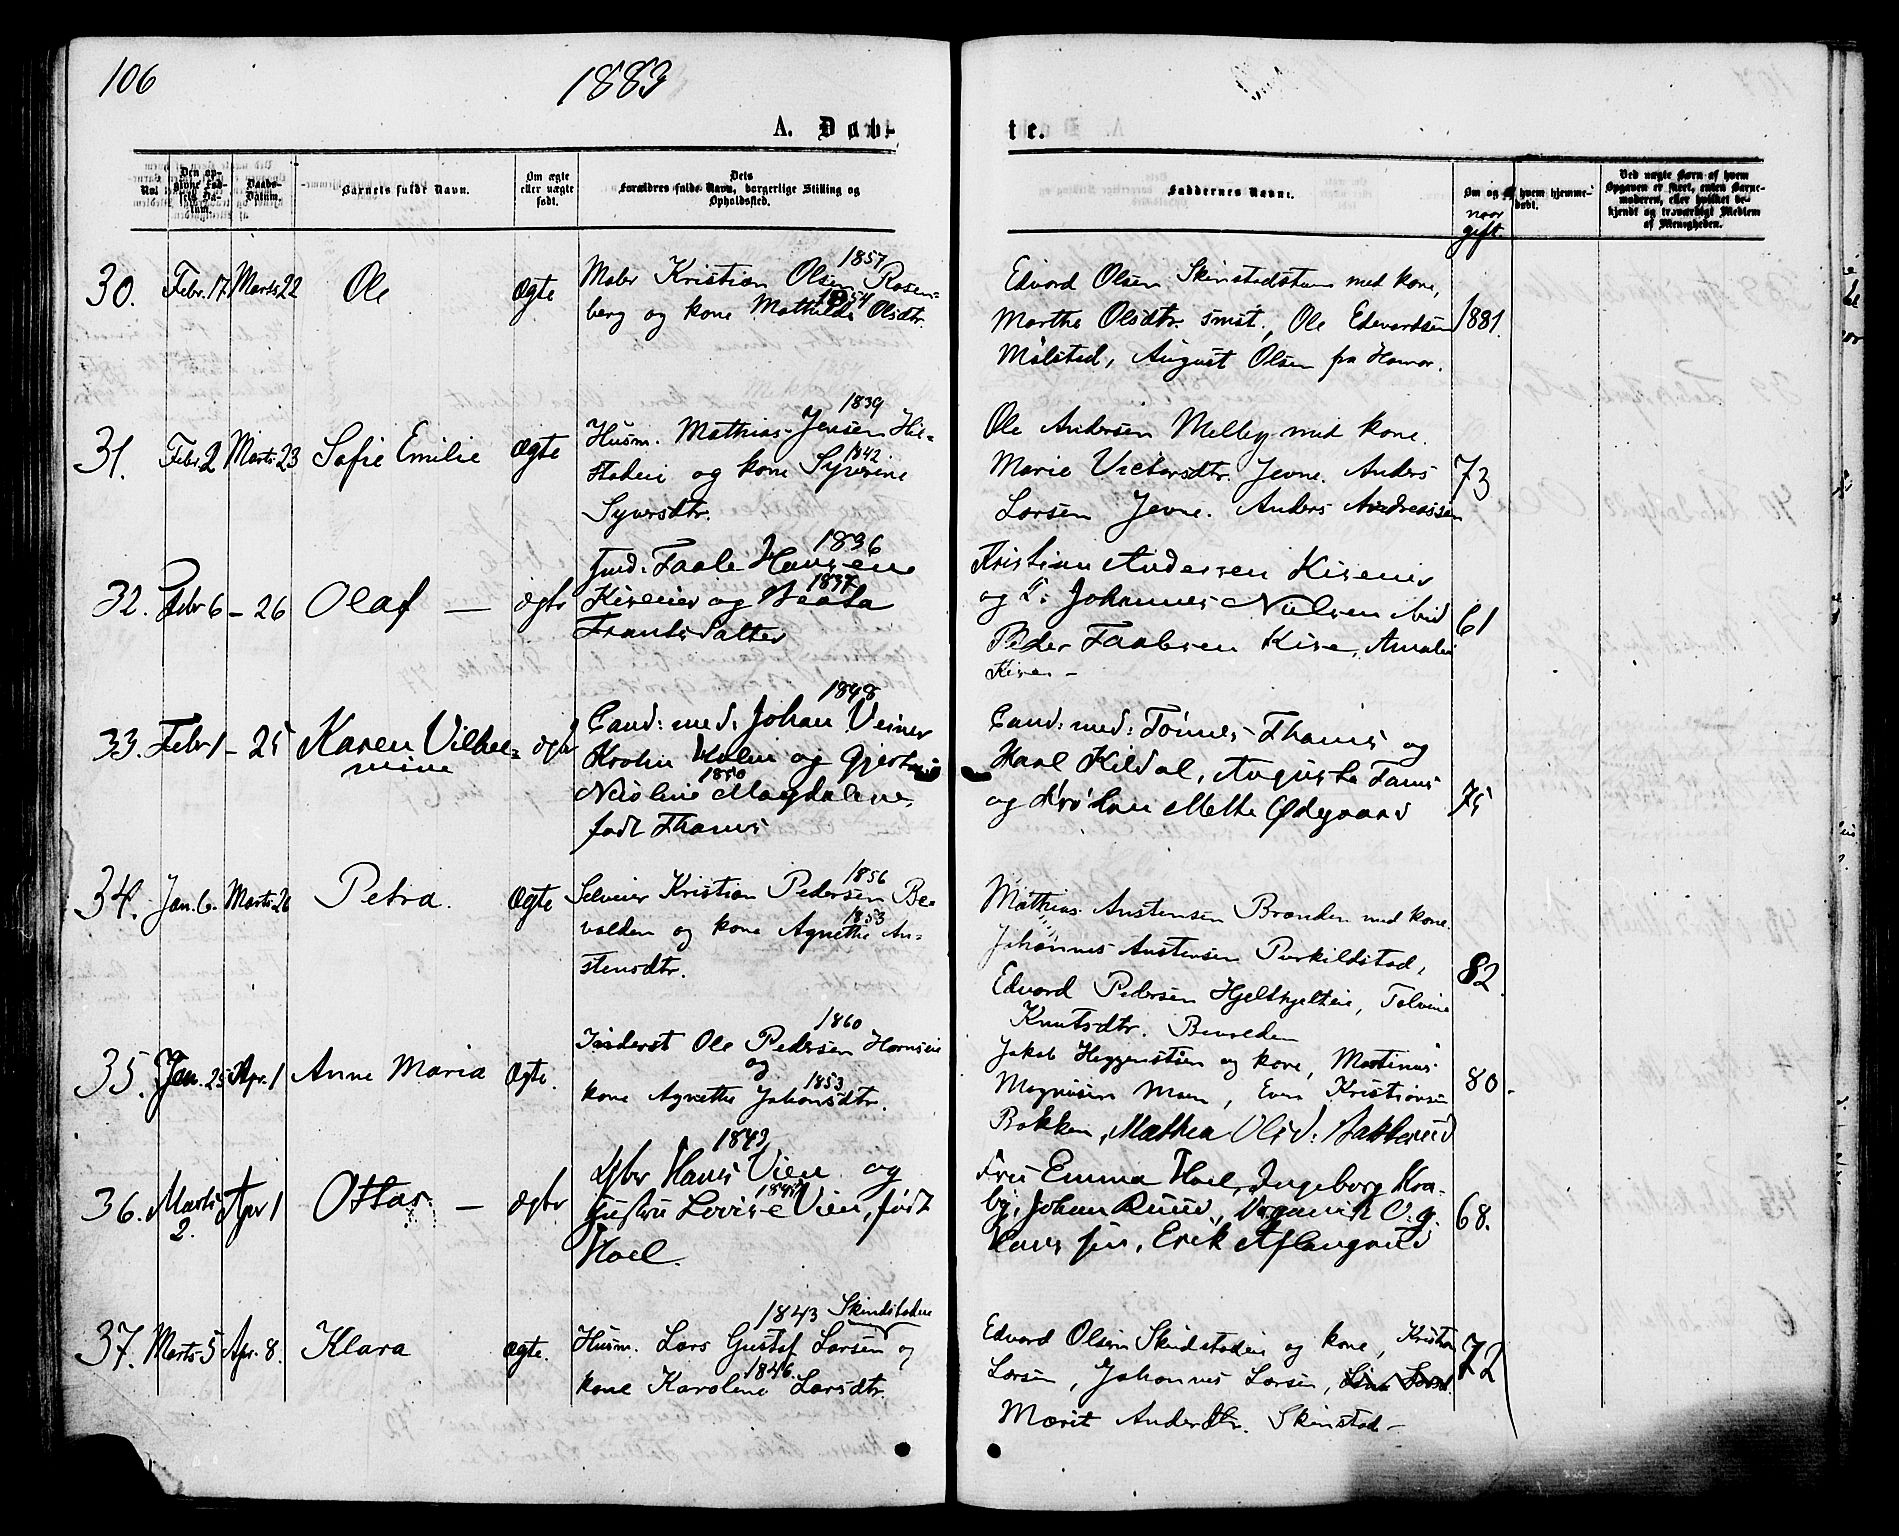 106
1883
A. Døb-
te.
No.
Den opgivne Fødsels Datum.
Daabs-Datum.
Barnets fulde Navn.
Om ægte eller uægte født.
Dets Forældres fulde Navn, borgerlige Stilling og Opholdsted.
Faddernes Navne.
Om og af hvem hjemmedøbt.
naar gift.
Ved uægte Børn af hvem Opgaven er skeet, enten Barnemoderen, eller hvilket bekjendt og troværdigt Medlem af Menigheden.
30. Febr. 17 Marts 22 Ole Ægte
Maler Kristian Olsen 1857 Rosen-
berg og kone Mathilde 1854 Olsdtr.
Edvard Olsen Skinstadstuen med kone,
Marthe Olsdtr. smst., Ole Edevardsen
Mælstad, August Olsen fra Hamar.
1881.
31. Febr. 2 Marts 23 Sofie Emilie Ægte
Husm. Mathias Jensen 1839 Hil-
stadeie og kone Syverine 1842
Syversdtr.
Ole Andersen Melby med kone.
Marie Victorsdtr. Jevne. Anders
Larsen Jevne. Anders Andreassen
73
32. Febr 6 - 26 Olaf — ægte
Ind. Taale Hansen 1836
Kiseeier og Beata 1837
Frants Datter
Kristian Andersen Kiseeier
og Johannes Nielsen
Peder Taalesen Kise, Amalie
Kise -
61
33. Febr 1 - 25 Karen Vilhel-
mine ægte
Cand: med: Johan 1848 Veiner
Krohn Holm og Gjert
Nicoline 1850 Magdalene,
født Thams
Cand: med: Tönnes Thams og
Kildal, Augusta Tams
og Frøken Mette Ødegaard
75
34. Jan. 6. Marts 26 Petra. Ægte
Selveier Kristian Pedersen 1856 Be-
valden og kone Agnethe 1853 An-
stensdtr.
Mathias Anstensen Brænden med kone.
Johannes Anstensen Purkildstad,
Edvard Pedersen Hjeltkjelteie, Tolvine
Knutsdtr. Bevalden
82.
35. Jan. 25 Apr. 1 Anne Maria Ægte.
Inderst Ole Pedersen 1860 Hornseie
og
kone Agnethe Johansdtr. 1853
Jakob Heggensteen og kone, Martinus
Magnusen Moen, Even Kristiansen
Bakken, Mathea Olsd: Bakkerud
80.
36. Marts 2. Apr 1 Ottar — ægte
Hans Vien 1843 og
Hustru Lovise 1845 Vien, født
Hoel.
Fru Emma Hoel, Ingeborg Kra-
by, Johan Ruud,
Hans, Erik Aflangrud
68.
37. Marts 5 Apr. 8. Klara ægte.
Husm. Lars Gustaf Larsen 1843 Skindstadeie og
kone Karoline 1846. Larsdtr.
Edvard Olsen Skindstadeie og kone, Kristian
Larsen, Johannes Larsen,
Marit Andersdtr. Skinstad -
72